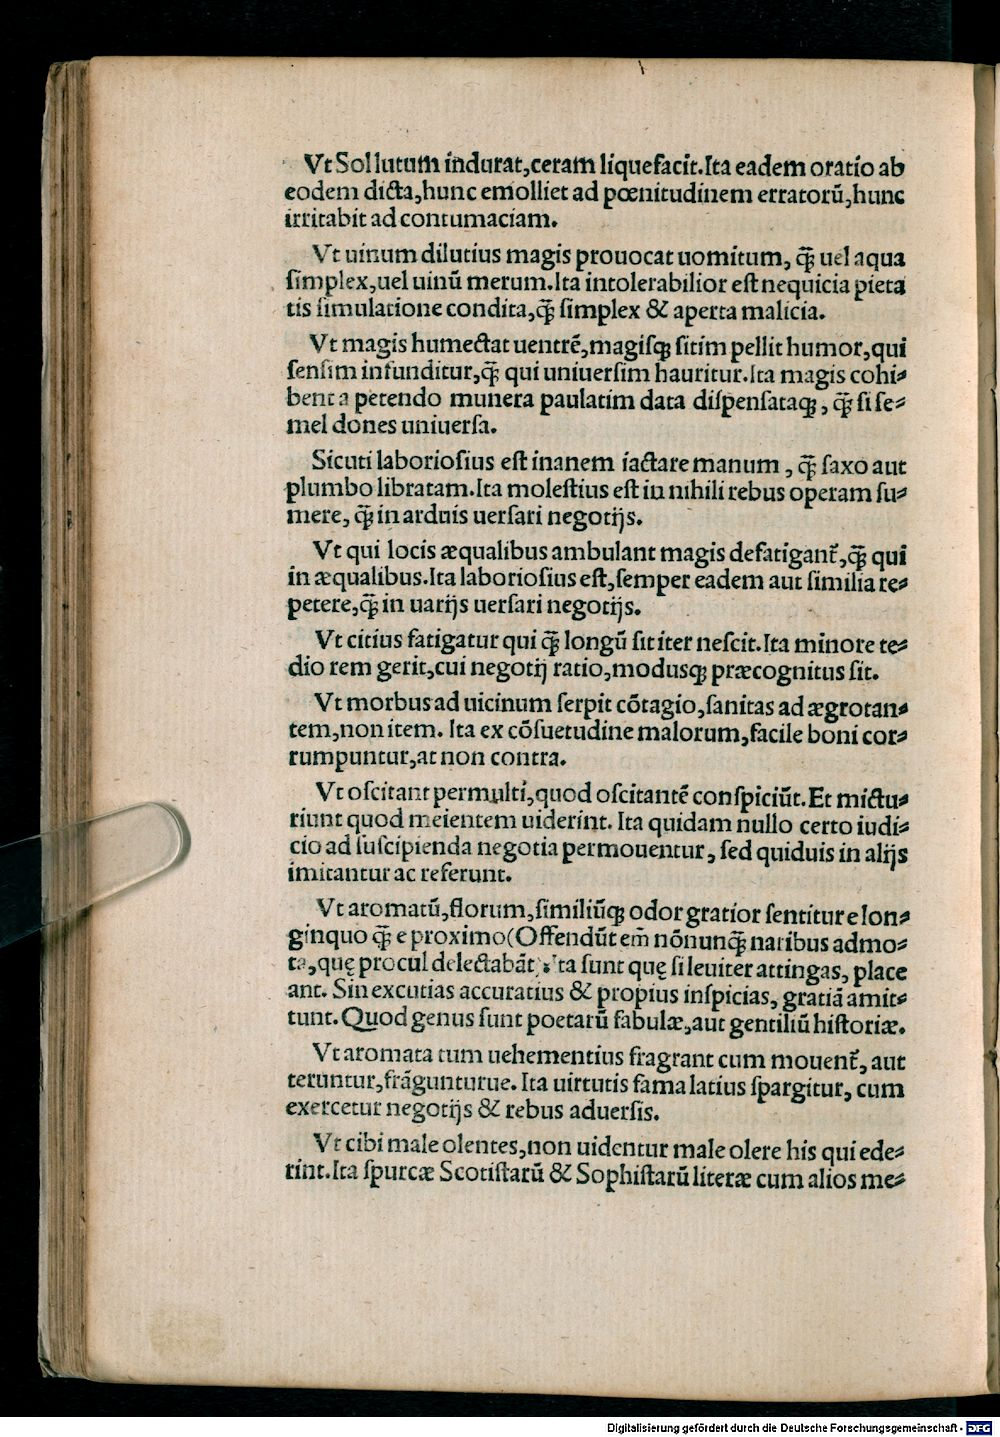 Vt Sol lutum indurat,ceram liquefacit.Ita eadem oratio ab
eodem dicta,hunc emolliet ad pœnitudinem erratorū,hunc
irritabit ad contumaciam.
Vt uinum dilutius magis prouocat uomitum, q̄ uel aqua
simplex,uel uinū merum.Ita intolerabilior est nequicia pieta
tis simulatione condita,q̄ simplex & aperta malicia.
Vt magis humectat uentrē,magisqꝫ sitim pellit humor,qui
sensim infunditur,q̄ qui uniuersim hauritur.Ita magis cohi⸗
bent a petendo munera paulatim data dispensataqꝫ, q̄ si se⸗
mel dones uniuersa.
Sicuti laboriosius est inanem iactare manum, q̄ saxo aut
plumbo libratam.Ita molestius est in nihili rebus operam su⸗
mere, q̄ in arduis uersari negotijs.
Vt qui locis æqualibus ambulant magis defatigant᷑,q̄ qui
in æqualibus.Ita laboriosius est,semper eadem aut similia re⸗
petere,q̄ in uarijs uersari negotijs.
Vt citius fatigatur qui q̄ longū sit iter nescit.Ita minore te⸗
dio rem gerit,cui negotij ratio,modusqꝫ præcognitus sit.
Vt morbus ad uicinum serpit cōtagio,sanitas ad ægrotan⸗
tem,non item. Ita ex cōsuetudine malorum,facile boni cor⸗
rumpuntur,at non contra.
Vt oscitant permulti,quod oscitantē conspiciūt.Et mictu⸗
riunt quod meientem uiderint. Ita quidam nullo certo iudi⸗
cio ad suscipienda negotia permouentur, sed quiduis in alijs
imitantur ac referunt.
Vt aromatū,florum,similiūqꝫ odor gratior sentitur e lon⸗
ginquo q̄ e proximo(Offendūt em̄ nōnunq̄ naribus admo⸗
ta,quę procul delectabāt) Ita sunt quę si leuiter attingas, place
ant. Sin excutias accuratius & propius inspicias, gratiā amit⸗
tunt. Quod genus sunt poetarū fabulæ,aut gentiliū historiæ.
Vt aromata tum uehementius fragrant cum mouent᷑, aut
teruntur,frāgunturue. Ita uirtutis fama latius spargitur, cum
exercetur negotijs & rebus aduersis.
Vt cibi male olentes,non uidentur male olere his qui ede⸗
rint.Ita spurcæ Scotistarū & Sophistarū literæ cum alios me⸗
Digitalisierung gefördert durch die Deutsche Forschungsgemeinschaft - DFG